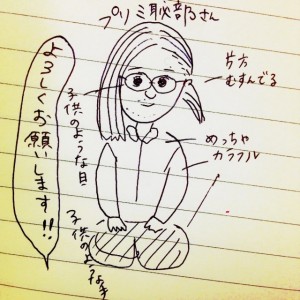 プリミ恥部さん
片方
むすんでる
子供のような目
めっちゃ
カラフル
よろしくお願いします!!
子供のような手